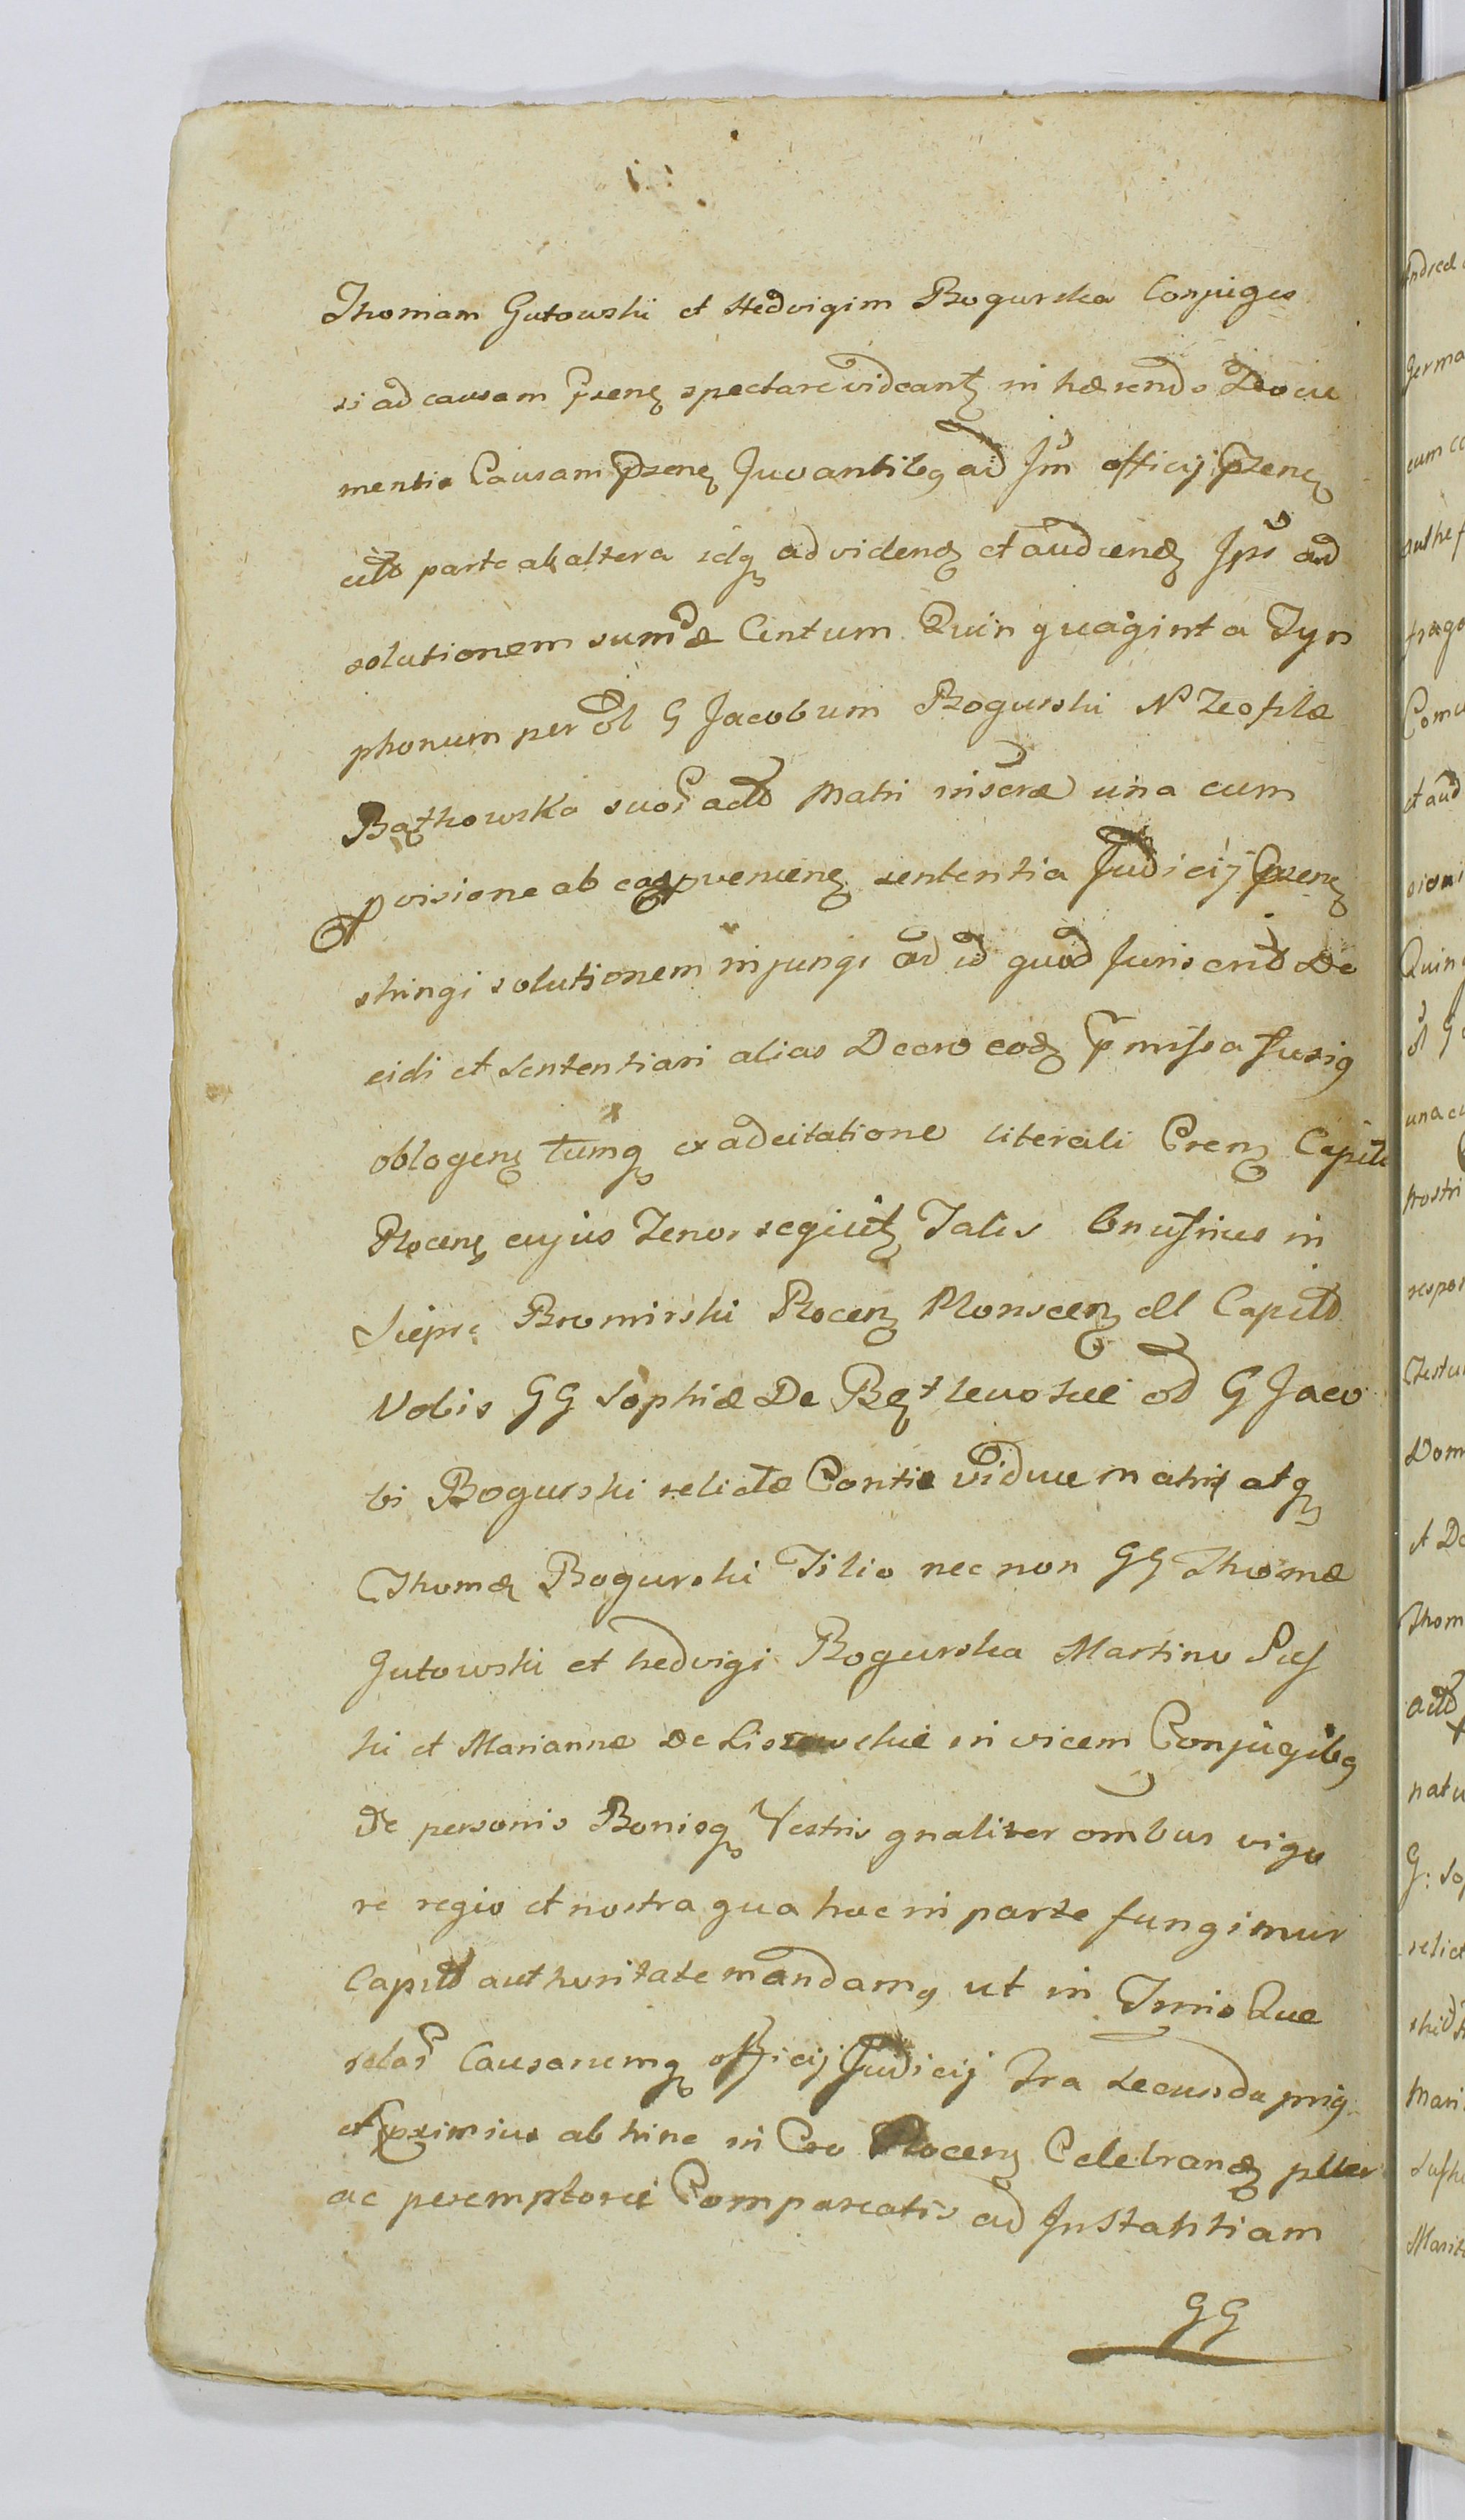 Thomam Gutowski et Hedvigim Bogurska Conjuges
si ad causam Prsenę spectare videantz in hærendo Docu
mentis Causam Przenę Juvantibg ad Jm officij Przenę
citt parte ab altera idq ad videndz et audiendz Jps ad
solutionem sumæ Centum Quinquaginta Tyn
phonum per ol G Jacobum Bogurski N Zeoflæ
Bątkowska suor actt Matri inscræ una cum
pvisione ab eag pvenienę sententia Judicij Przenę
stringi solutionem injungi ad id quod Juris erit De
cidi et Sententiari alias Decro eodz pmissa fusig
oblogenę tumq ex adcitatione literali Prenz Capit
Plocenę cujus Tenor seqiutz Talis Onufrius in
Siepr: Bromirski Plocenz Plonscenz ett Capitt
Vobis GG Sophiæ De Bątkowskie od G Jaco
bi Bogurski relictæ Contis viduæ matri atq
Thomæ Bogurski Filio nec non GG Thomæ
Gutowski et hedvigi Bogurska Martino Suf
ki et Mariannæ De in vicem Conjugibg
De personis Bonisq Vestris gnaliter ombus vigo
re regio et nostra qua hac in parte fungimur
Capitt authoritate mandamg ut in Tmis Que
relar Causarumq officij Judicij Fra secunda prig
et pximius ab hinc in Cro Plocenz Celebrandz ptter
ac peremptorie Compareatis ad Jnstantiam
GG
Andreæ
Germa
cum co
authe
frago
Comu
et aud
sioni
Quin
ol G
una cu
Nostri
respon
Dom
et De
Thom
actt
natu
G: So
relict
Mari
Marit